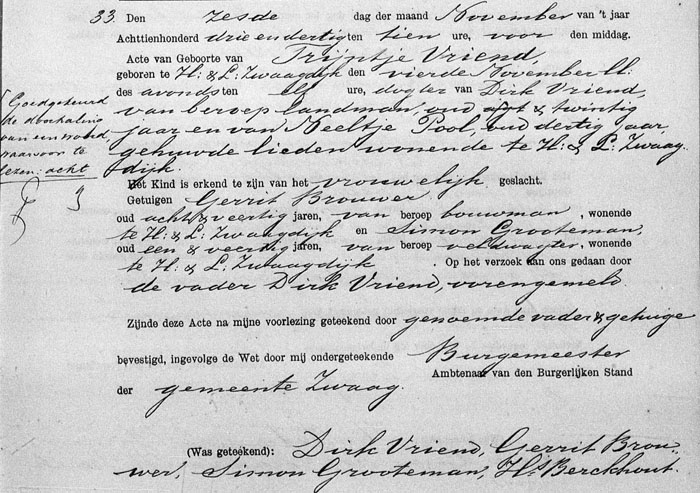 33. Den zesde dag der maand November van 't jaar
Achttienhonderd drie en dertig ten tien ure, voor den middag.
Acte van Geboorte van Trijntje Vriend,
geboren te H: & L: Zwaagdijk den vierde November ll.
des avonds ten elf ure, dogter van Dirk Vriend,
van beroep landman, oud agt & twintig
jaar en van Neeltje Pool, oud dertig jaar,
gehuwde lieden wonende te H: & L: Zwaag-
dijk.
Goedgekeurd
de doorhaling
van een woord,
waarvoor te
lezen: acht
Het Kind is erkend te zijn van het vrouwelijk geslacht.
Getuigen Gerrit Brouwer
oud acht & veertig jaren, van beroep bouwman, wonende
te H: & L: Zwaagdijk en Simon Grooteman,
oud een & veertig jaren, van beroep veldwagter, wonende
te H: & L: Zwaagdijk. Op het verzoek aan ons gedaan door
de vader Dirk Vriend, voorengemeld
Zijnde deze Acte na mijne voorlezing geteekend door genoemde vader & getuige
bevestigd, ingevolge de Wet door mij ondergeteekende Burgemeester
Ambtenaar van den Burgerlijken Stand
der gemeente Zwaag.
(Was geteekend): Dirk Vriend, Gerrit Brou-
wer, Simon Grooteman, Hs Berckhout.